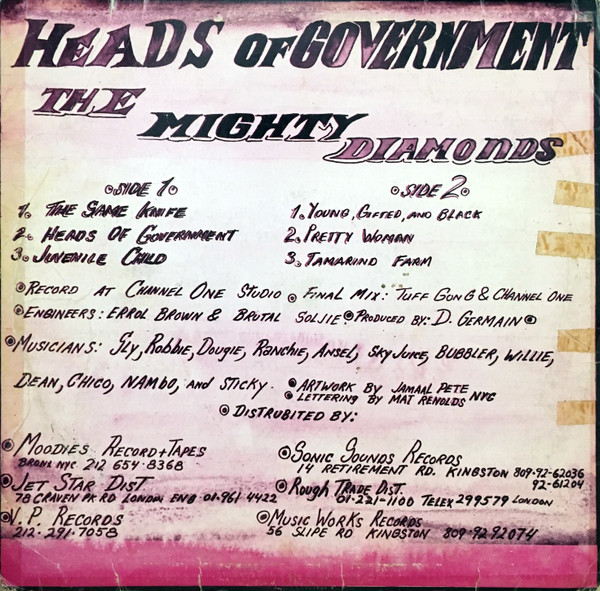 HEADS OF GOVERNMENT
THE
MIGHTY
DIAMONDS
SIDE 1
1. THE SAME KNIFE
2. HEADS OF GOVERNMENT
3. JUVENILE CHILD
SIDE 2
1. YOUNG, GIFTED, AND BLACK
2. PRETTY WOMAN
3. TAMARIND FARM
RECORD AT CHANNEL ONE STUDIO FINAL MIX: TUFF GONG & CHANNEL ONE
ENGINEERS: ERROL BROWN & BRUTAL SOLJIE PRODUCED BY: D. GERMAIN
MUSICIANS: SLY, ROBBIE, DOUGIE, RANCHIE, ANSEL, SKY JUICE, BUBBLER, WILLIE,
DEAN, CHICO, NAMBO, AND STICKY.
ARTWORK BY JAMAAL PETE
LETTERING BY MAT RENOLDS NYC
DISTRUBITED BY:
MOODIES RECORD + TAPES
BRONX NYC 212 654-8368
JET STAR DIST.
78 CRAVEN PK RD LONDON ENG 01-961 4422
V.P. RECORDS
212-291-7058
SONIC SOUNDS RECORDS
14 RETIREMENT RD. KINGSTON 809-92-62036
92-61204
ROUGH TRADE DIST.
01-221-1100 TELEX 299579 LONDON
MUSIC WORKS RECORDS
56 SLIPE RD KINGSTON 809-92 92074